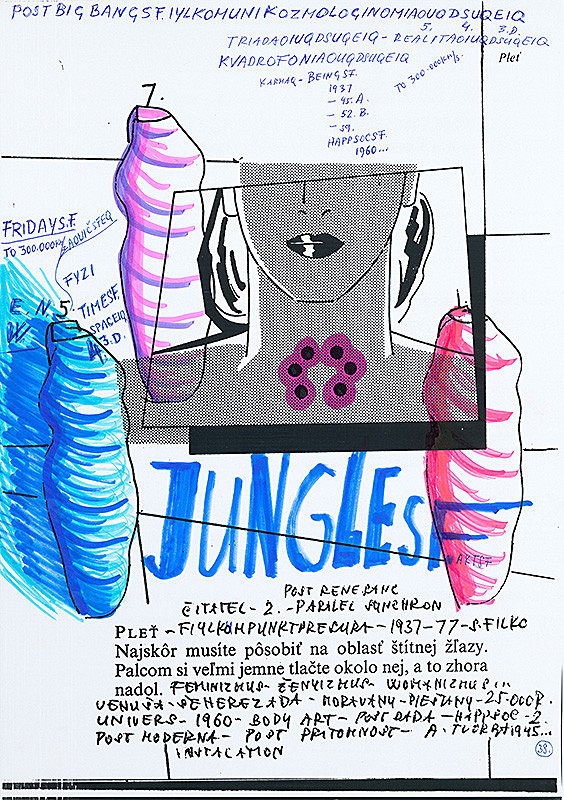 POST BIG BANGSF. IYLKOMUNIKOZMOLOGINOMIAOUQDSUQEIQ
5. 4. 3.D.
TRIADAOIUQDSUQEIQ - REALITAOIUQDSUQEIQ
KVADROFONIAOUQDSUQEIQ
Pleť
TO 300.000km/s.
BEING SF.
1937
- 45. A.
- 52. B.
- 59.
HAPPSOCSF.
1960...
7.
FRIDAYSF.
TO 300.000
FYZI
E. N. 5.
W
TIMESF.
SPACEIQ
4. 3.D.
1.
JUNGLESF
ARTSF
POST RENESANC
ČITATEL - 2. - PARALEL SYNCHRON
PLEŤ - FIYLKOMPUNKTPRESURA - 1937 - 77 - S. FILKO
Najskôr musíte pôsobiť na oblasť štítnej žľazy.
Palcom si veľmi jemne tlačte okolo nej, a to zhora
nadol. FEMINIZMUS - ŽENYIZMUS - WOMANIZMUS
VENUŠA - ŠEHEREZADA - MORAVANY - PIEŠŤANY - 25.000R.
UNIVERS - 1960 - BODY ART - POST DADA - HAPPSOC - 2.
POST MODERNA - POST PRITOMNOST - A. TVORBA 1945...
INSTALATION
38.